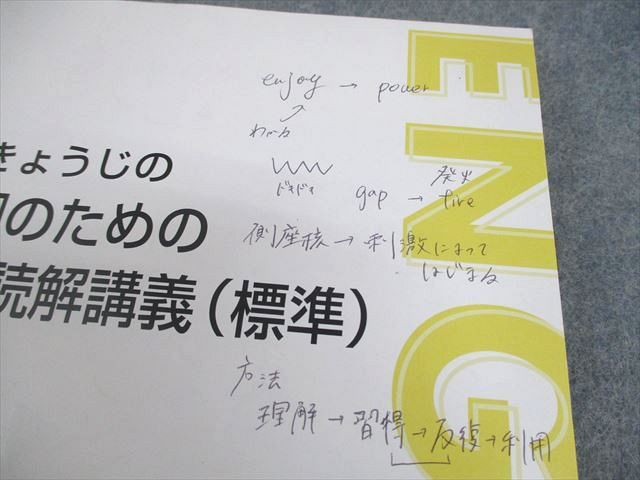 enjoy → power
わかる
ドキドキ
発火
gap → fire
側座核 → 刺激によって
はじまる
きょうじの
のための
読解講義(標準)
方法
理解 → 習得 → 反復 → 利用
ENG